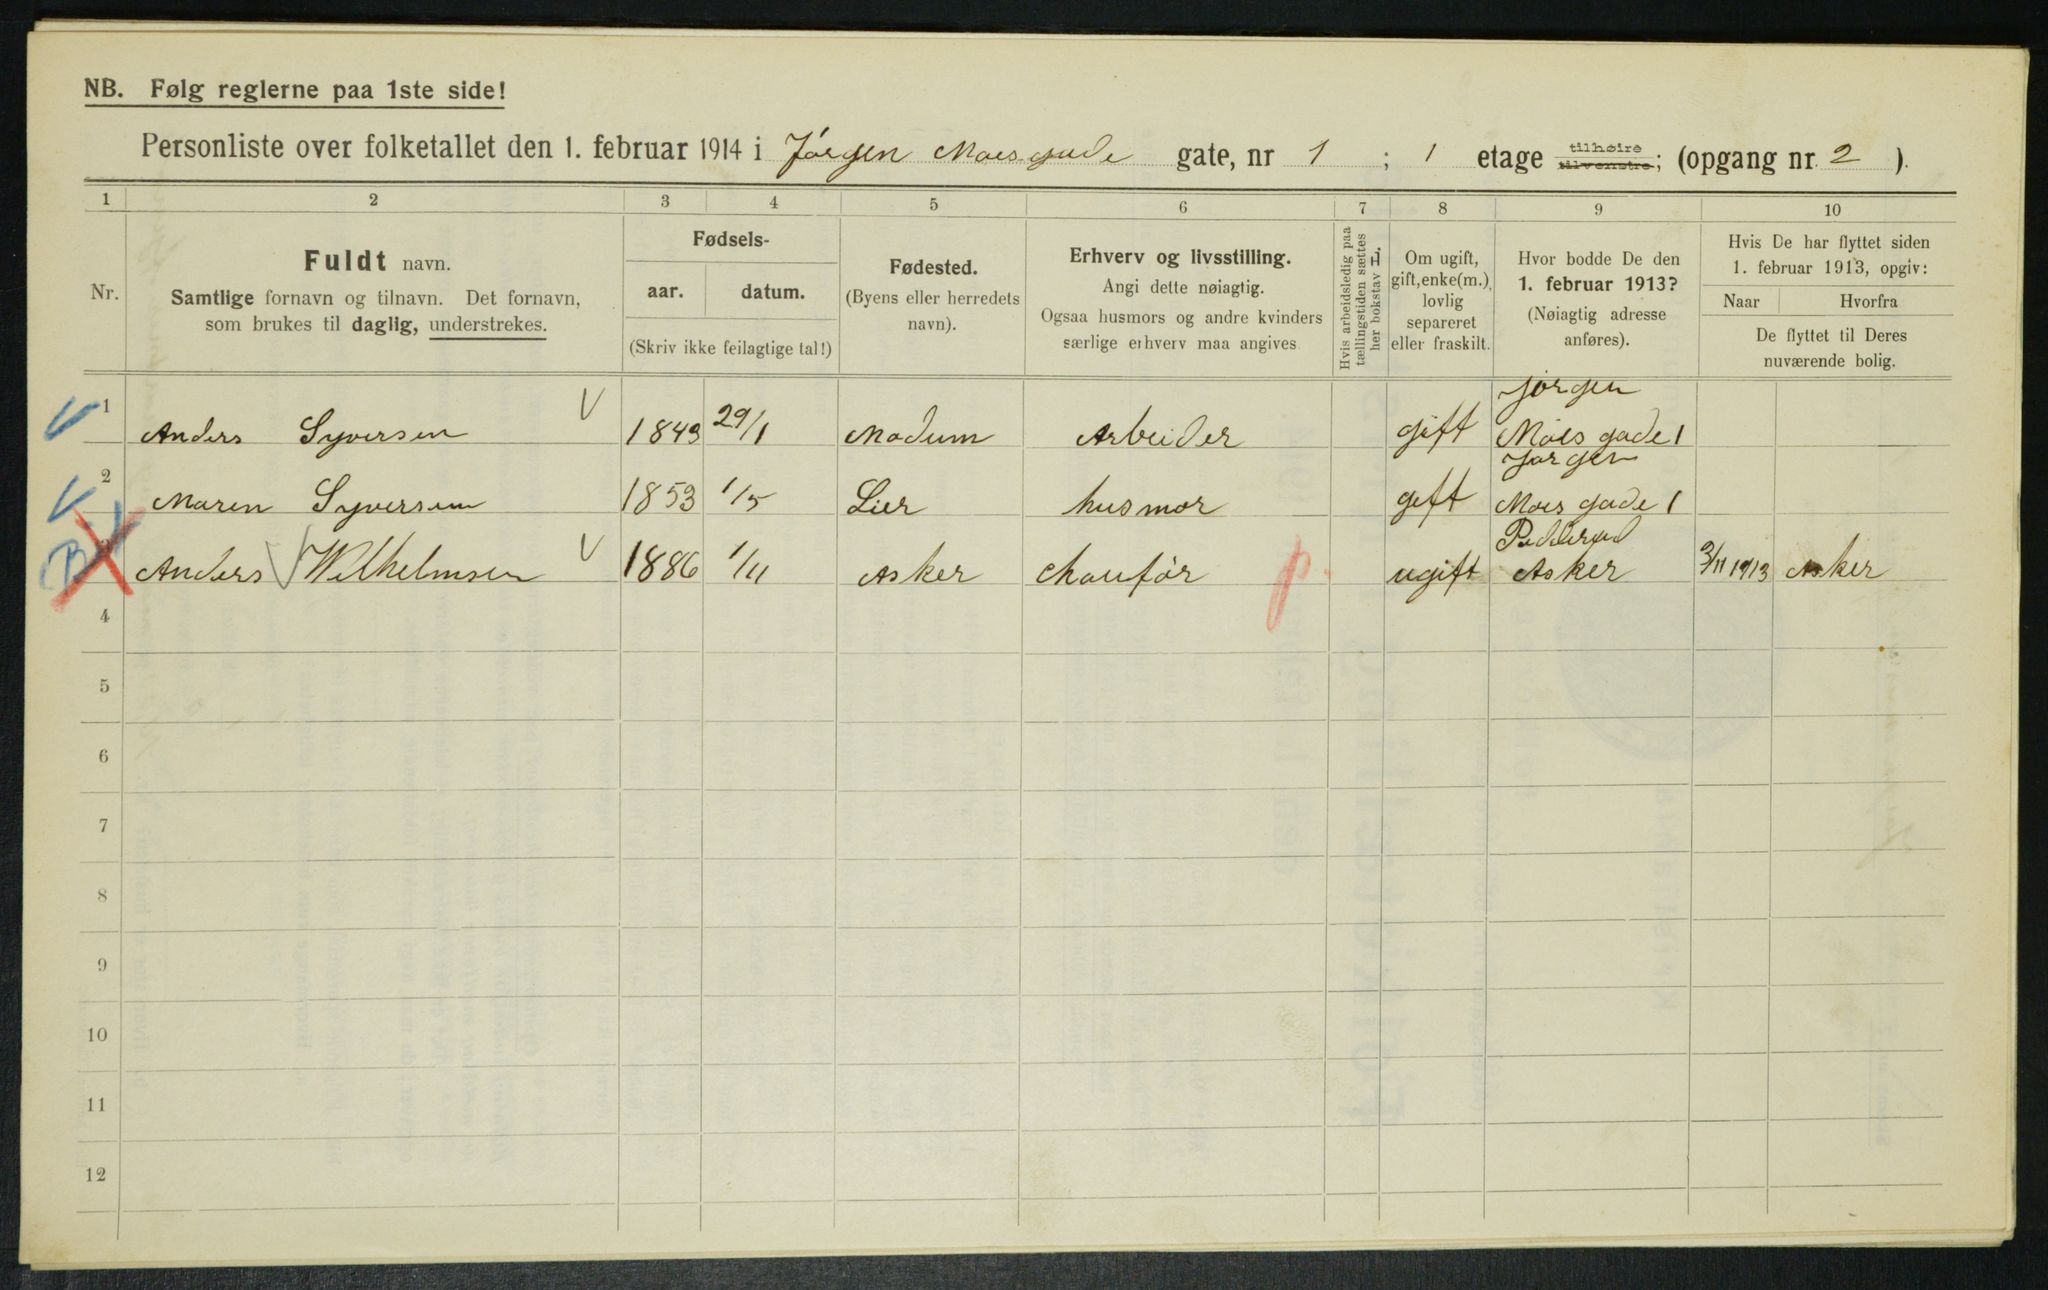 NB. Følg reglerne paa 1ste side!
Personliste over folketallet den 1. februar 1914 i Jørgen Moes gade gate, nr 1 ; 1 etage tilhøire tilvenstre; (opgang nr. 2 ).
1 2 3 4 5 6 7 8 9 10
Nr.
Fuldt navn.
Samtlige fornavn og tilnavn. Det fornavn,
som brukes til daglig, understrekes.
Fødsels-
aar. datum.
(Skriv ikke feilagtige tal!)
Fødested.
(Byens eller herredets
navn).
Erhverv og livsstilling.
Angi dette nøiagtig.
Ogsaa husmors og andre kvinders
særlige erhverv maa angives.
Hvis arbeidsledig paa
tællingstiden sættes
her bokstav L.
Om ugift,
gift, enke(m.),
lovlig
separeret
eller fraskilt.
Hvor bodde De den
1. februar 1913?
(Nøiagtig adresse
anføres).
Hvis De har flyttet siden
1. februar 1913, opgiv:
Naar Hvorfra
De flyttet til Deres
nuværende bolig.
1 Anders Syversen 1849 29/1 Modum Arbeider gift Jørgen Moes gade 1
2 Maren Syversen 1853 1/5 Lier husmor gift Jørgen Moes gade 1
3 Anders Wilhelmsen 1886 1/11 Asker Chaufør ugift Asker 3/11 1913 Asker
4
5
6
7
8
9
10
11
12